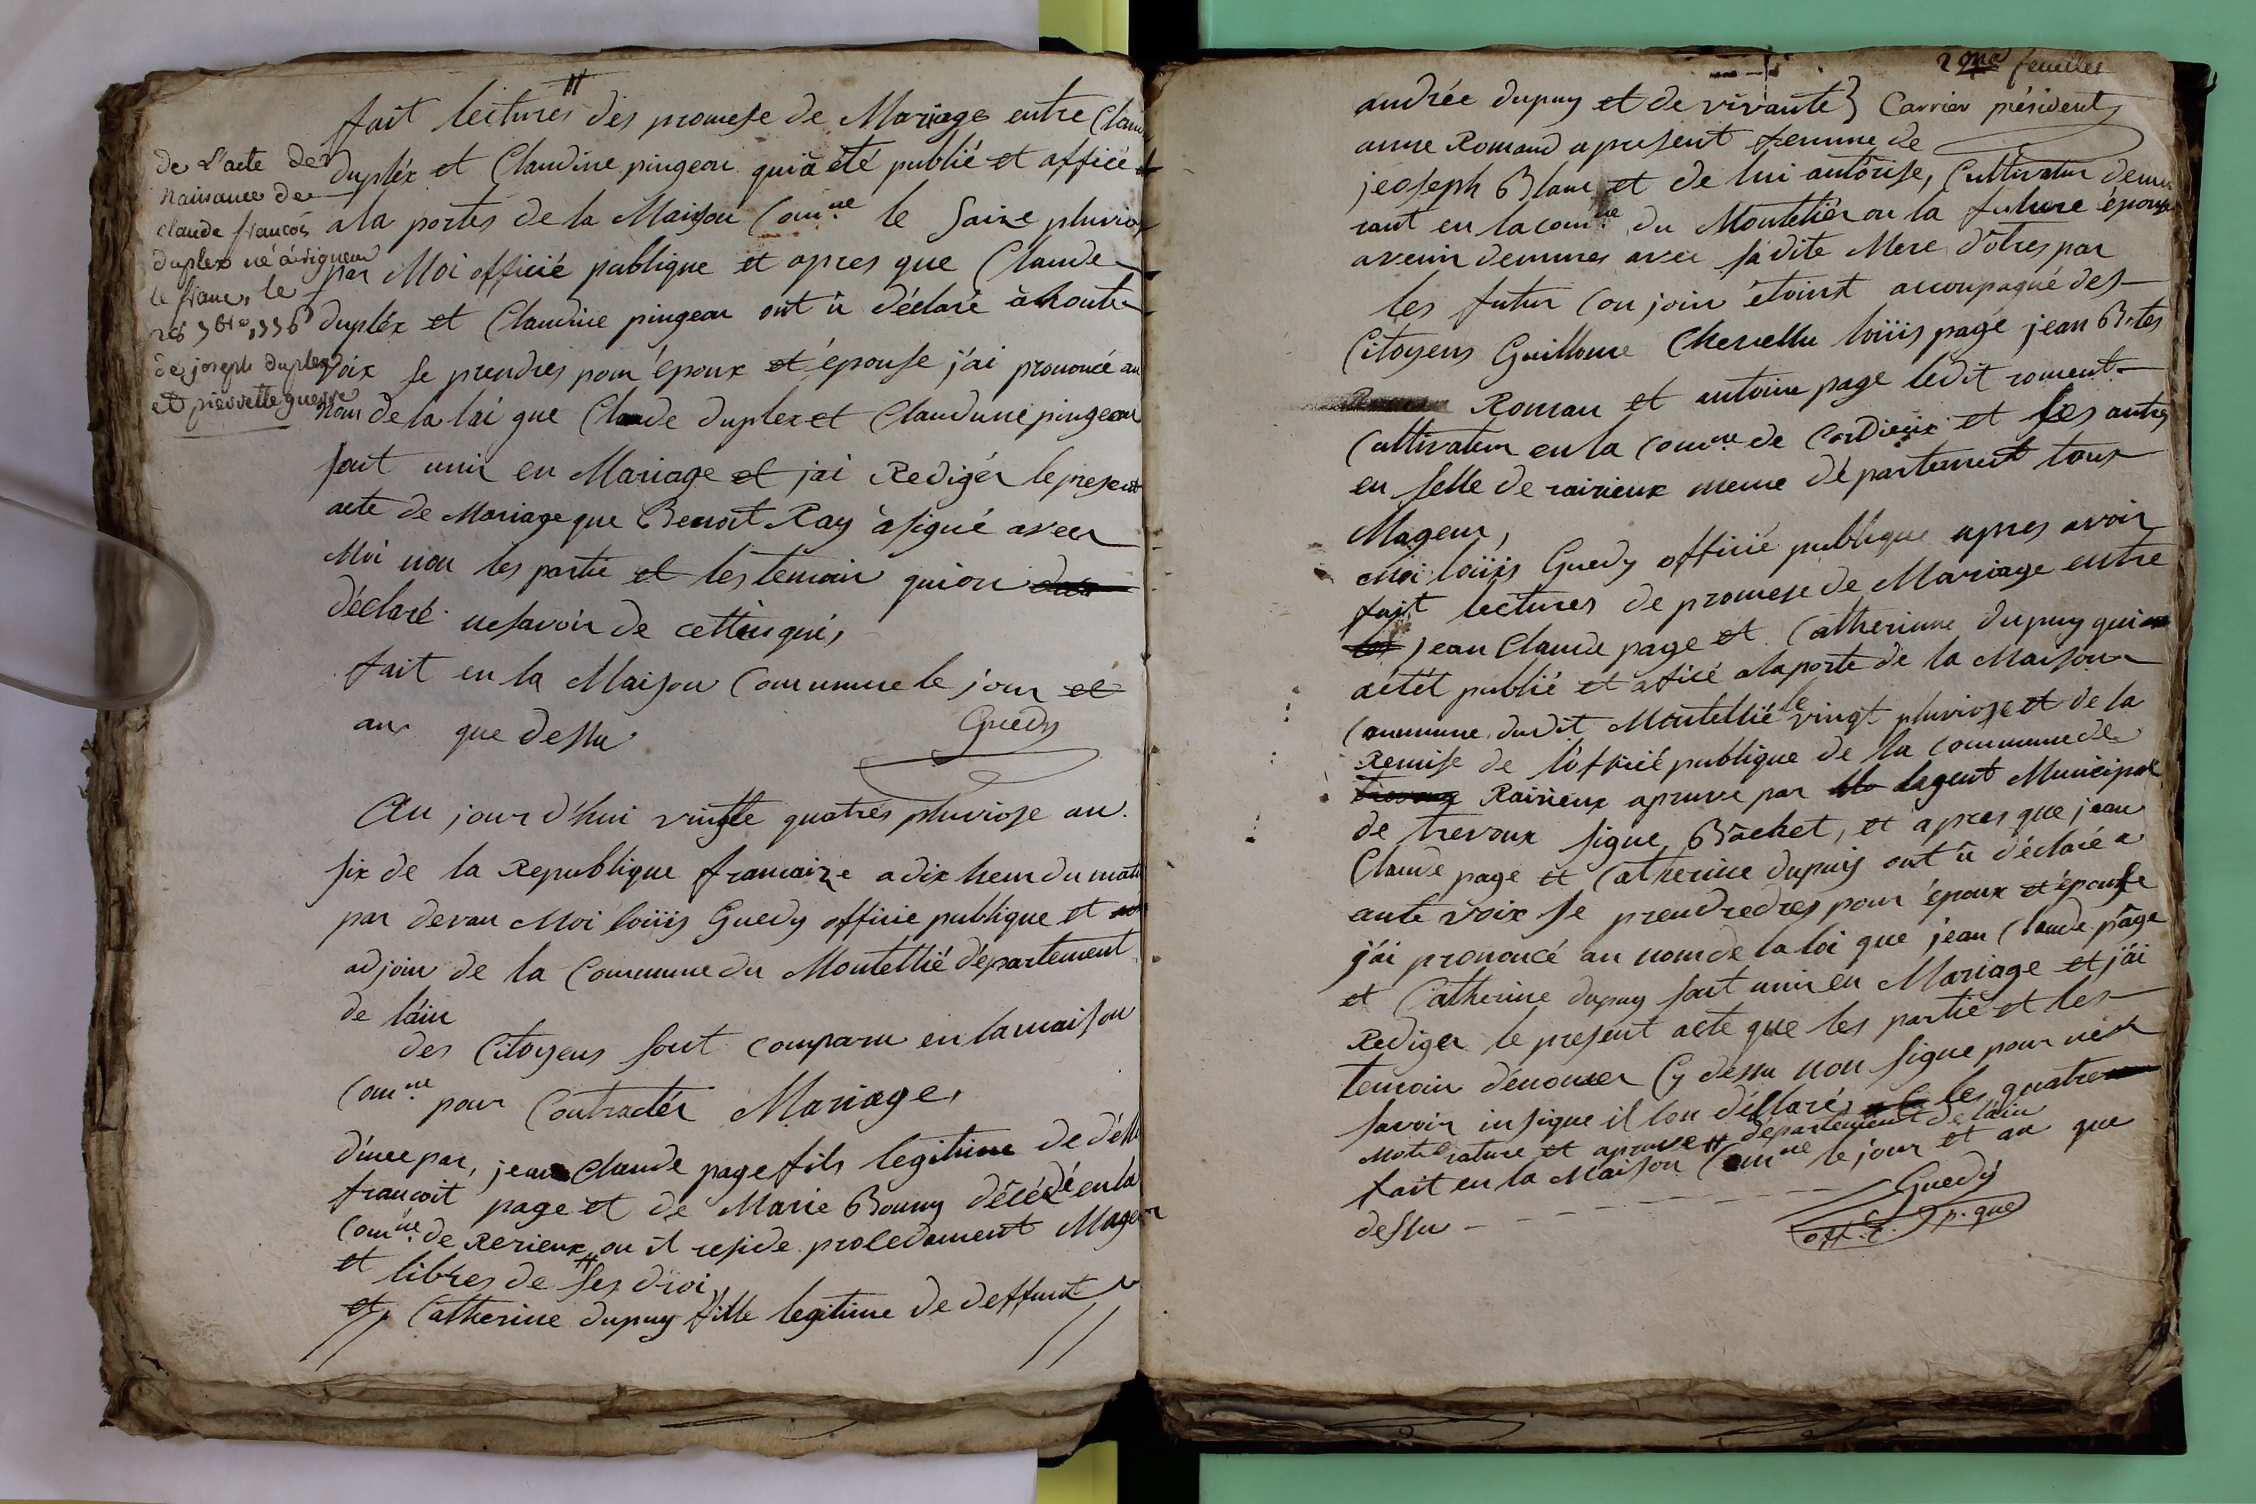 fait lectures dès promese de Mariage entre Clau
duplex et Claudine pingeon qui a été publié et afficé et
a la portes de la Maison Comne le Saize pluvios
par Moi officié publique et apres que Claude
duplex et Claudine pingeon ont û déclaré à haute
voix se prendres pour époux et épouse j'ai prononcé au
nom de la lai que Claude duplex et Claudine pingeon
sont unir en Mariage et j'ai Redigér le present
acte de Mariage que Benoit Ray a signé avecr
Moi non les partie et les temoin qui on
déclaré ne savoir de cettes qui,
fait en la Maison Commune le jour et
an que dessu
Guedy
de L'acte de
Naissance de
claude françois
duplex né à vigneux
le franc, le
23 9bre 1736
de joseph duplex
et pierrette guerre
Au jour d'hui vingte quatres pluviose an
six de la Republique francaize a dix heur du mati
par devan Moi loüis Guedy officie publique et
adjoin de la Commune du Montellié département
de l'ain
des Citoyens sont comparu en la maison
Comne pour Contractér Mariage,
d'une par, jean Claude page fils legitime de défu
françoit page et de Marie Bouny décédé en la
Comne de Rerieux ou il reside proledament Mageur
et libres de ses droi,
et Catherine dupuy fille legitime de deffunt
2me feuilles
andrée dupuy et de vivante Carrier président
anne Romand apresent femme de
jeoseph Blanc et de lui autôrise, Cultivateur demeu
rant en la comne du Montelier ou la future épouse
avenir demeures avec sa dite Mere d'otres par
les futur Conjoin étoint accompagné des
Citoyens Guilloume Chervellu loüis page jean Bates
Roman et antoine page ledit roment
Cultivateur en la Comne de Cordieux et les autres
en selle de rairieux meme département tous
Mageur,
Moi loüis Guedy officié publique apres avoir
fait lectures de promese de Mariage entre
jean Claude page et Catherinne dupuy qui
a étét publié et aficé a la porte de la Maison
Commune dudit Montellié le vingt pluviose et de la
Remise de l'officié publique de la commune de
Rairieux apruve par lagent Municipal
de trevoux signe Bachet, et apres que jean
Claude page et Catherine dupuy ont û déclaré a
aute voix se prendredres pour époux et épouse
j'ai prononcé au nom de la loi que jean Claude page
et Catherine dupuy sont unir en Mariage et j'ai
Rediger le present acte que les partie et les
temoin dénomer Cy dessu non signe pour ne
savoir insique il lon déllaré, les quatre
Mot rature et apruve département de lain
fait en la Maison Comne le jour et an que
dessu
Guedy
off. p. que